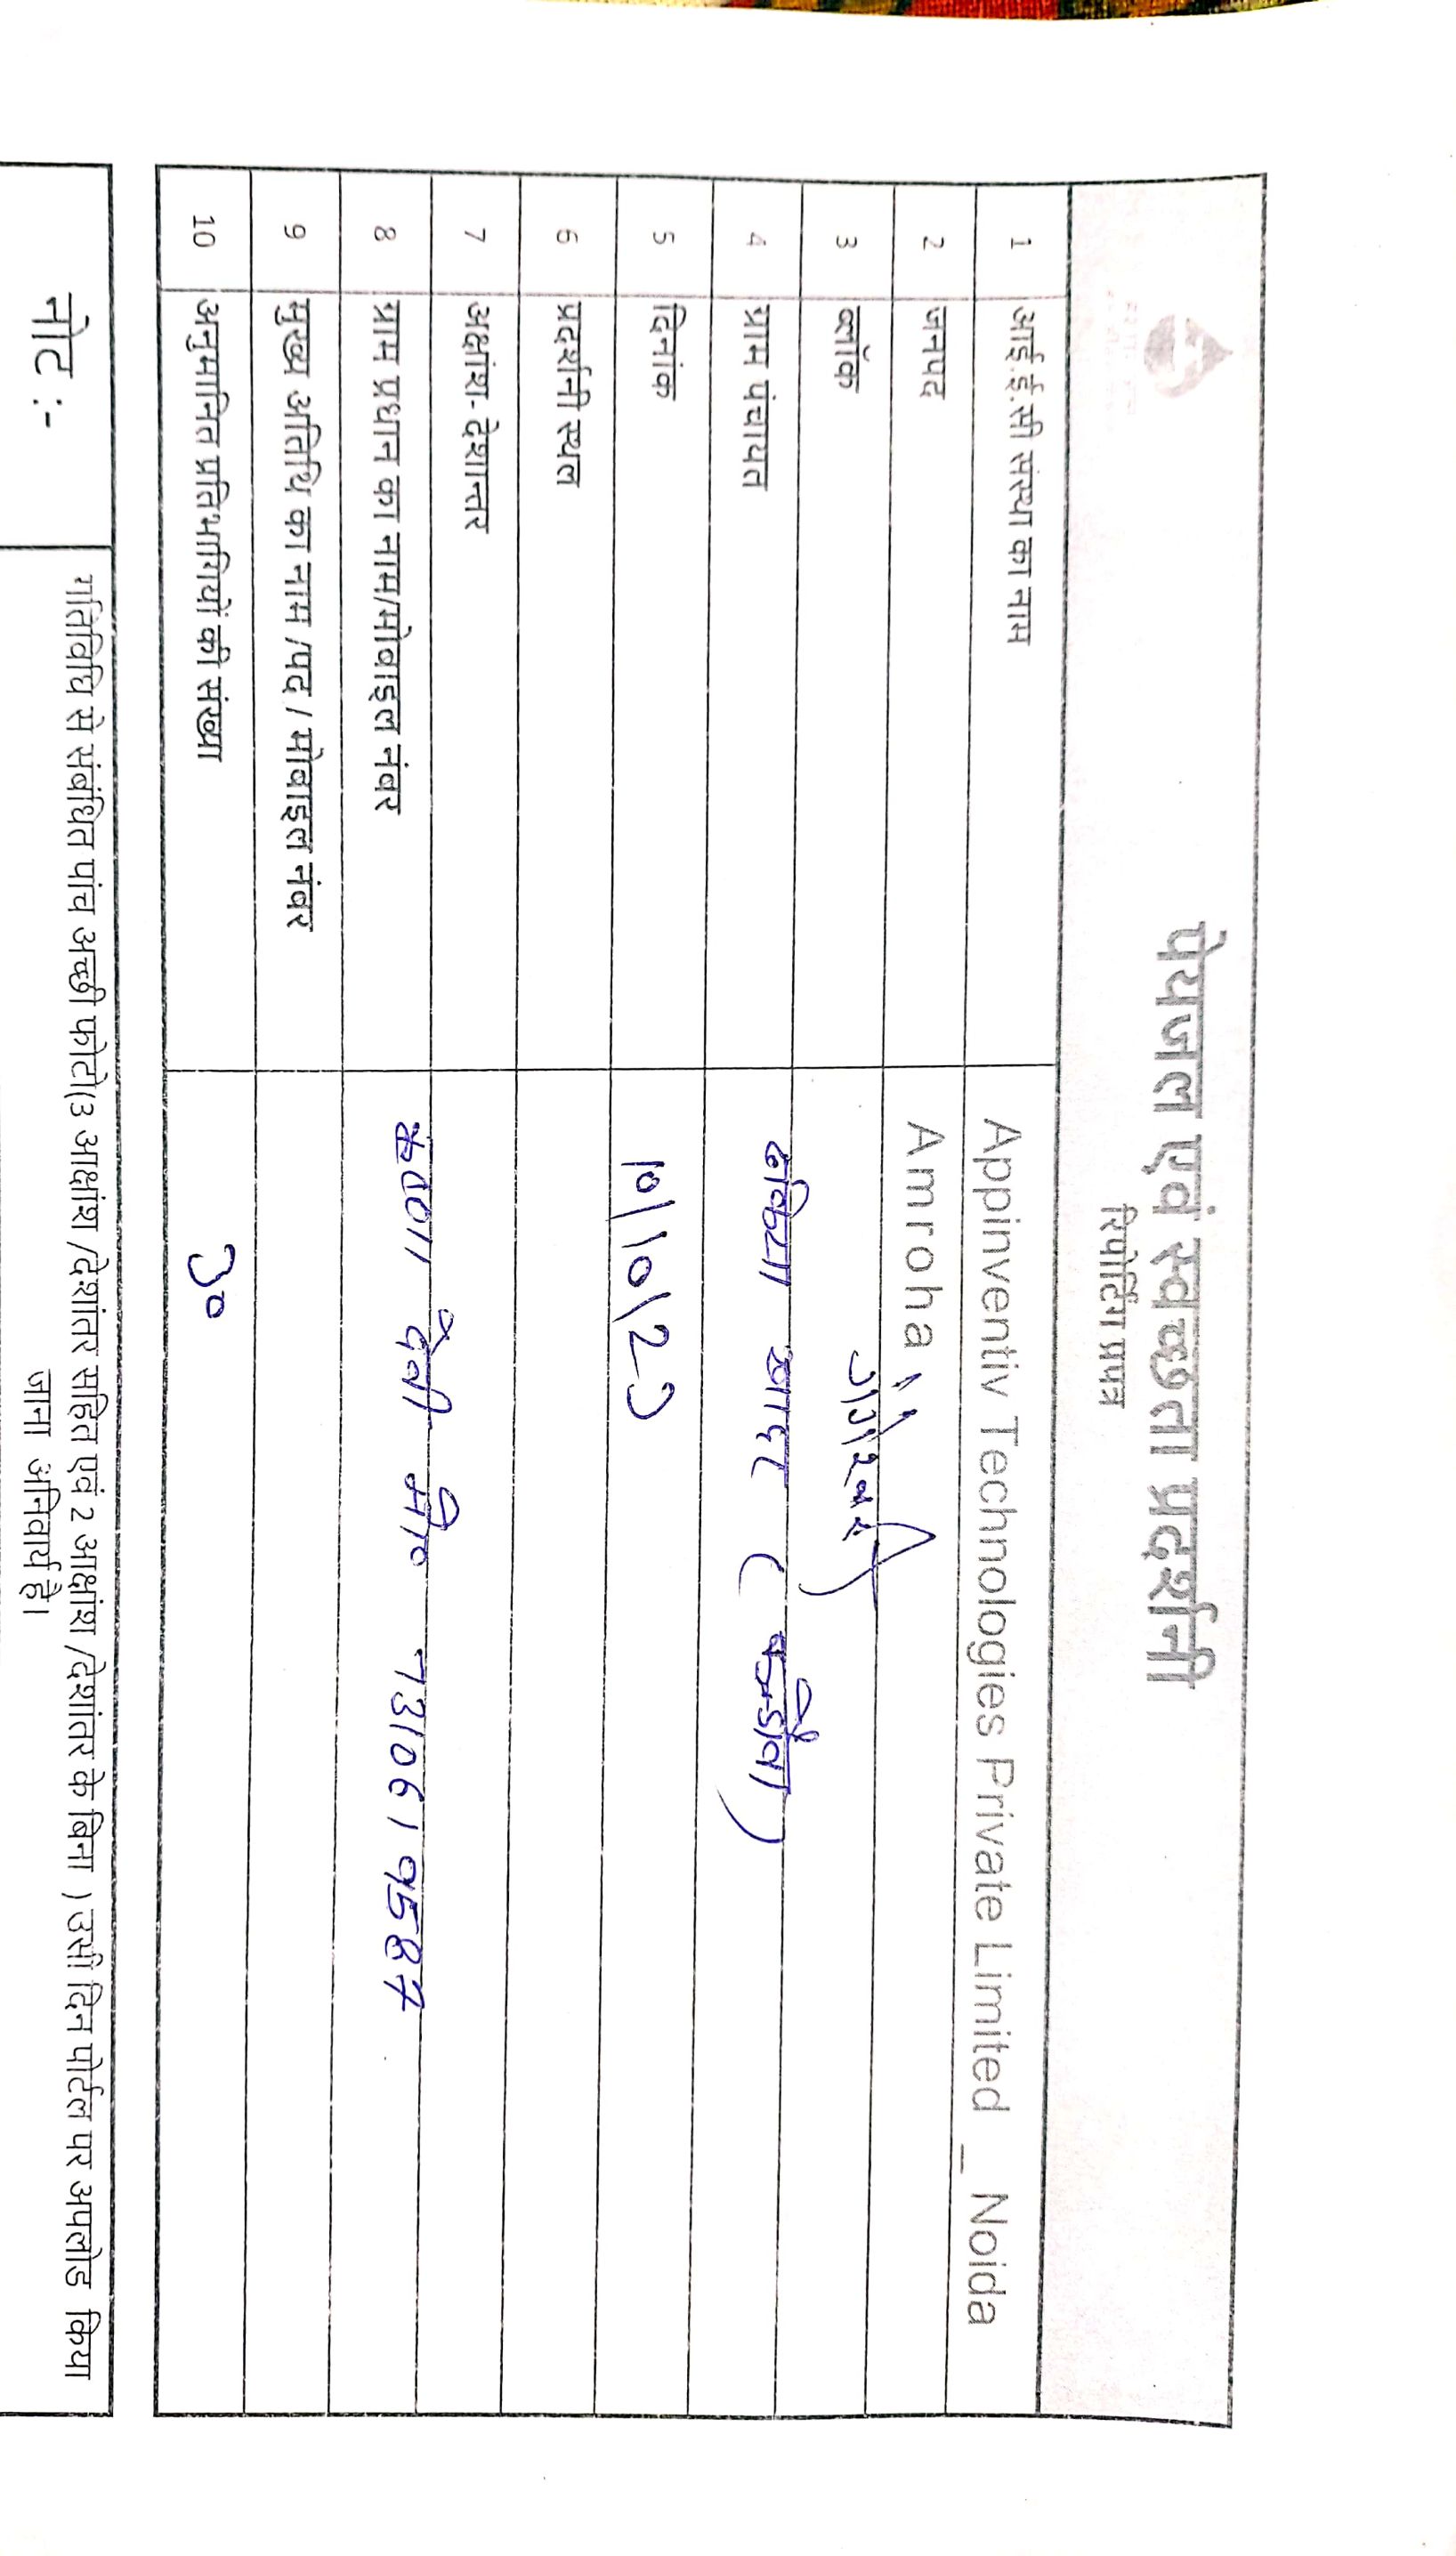 पेयजल एवं स्वच्छता प्रदर्शनी
रिपोर्टिंग प्रपत्र
1 आई.ई.सी संस्था का नाम Appinventiv Technologies Private Limited _ Noida
2 जनपद Amroha
3 ब्लॉक
4 ग्राम पंचायत
5 दिनांक 10/10/23
6 प्रदर्शनी स्थल
7 अक्षांश- देशान्तर
8 ग्राम प्रधान का नाम/मोबाइल नंबर देवी मो० 7310619587
9 मुख्य अतिथि का नाम /पद / मोबाइल नंबर
10 अनुमानित प्रतिभागियों की संख्या 30
नोट :-
गतिविधि से संबंधित पांच अच्छी फोटो(3 आक्षांश /देशांतर सहित एवं 2 आक्षांश /देशांतर के बिना ) उसी दिन पोर्टल पर अपलोड किया
जाना अनिवार्य है।